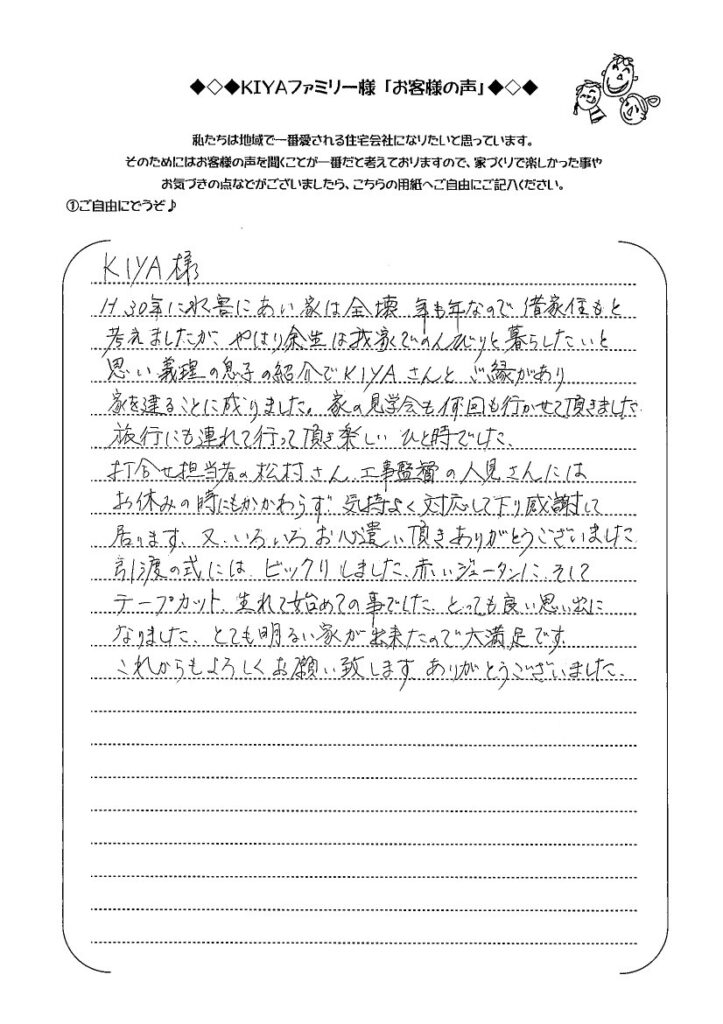 ◆◇◆KIYAファミリー様「お客様の声」◆◇◆
私たちは地域で一番愛される住宅会社になりたいと思っています。
そのためにはお客様の声を聞くことが一番だと考えておりますので、家づくりで楽しかった事や
お気づきの点などがございましたら、こちらの用紙へご自由にご記入ください。
①ご自由にどうぞ♪
KIYA様
H.30年に水害にあい家は全壊 年も年なので 借家住もと
考えましたが、やはり余生は我家でのんびりと暮らしたいと
思い 義理の息子の紹介でKIYAさんと ご縁があり
家を建ることに成りました。家の見学会も何回も行かせて頂きました
旅行にも連れて行って頂き楽しい ひと時でした、
打合せ担当者の松村さん、工事監督の人見さんには
お休みの時にもかかわらず 気持よく対応して下り感謝して
居ります、又、いろいろ お心遣い頂きありがとうございました
引渡の式には、ビックリしました、赤いジュータンに、そして
テープカット、生れて始めての事でした、とっても良い思い出に
なりました、とても明るい家が出来たので大満足です、
これからもよろしくお願い致します ありがとうございました、